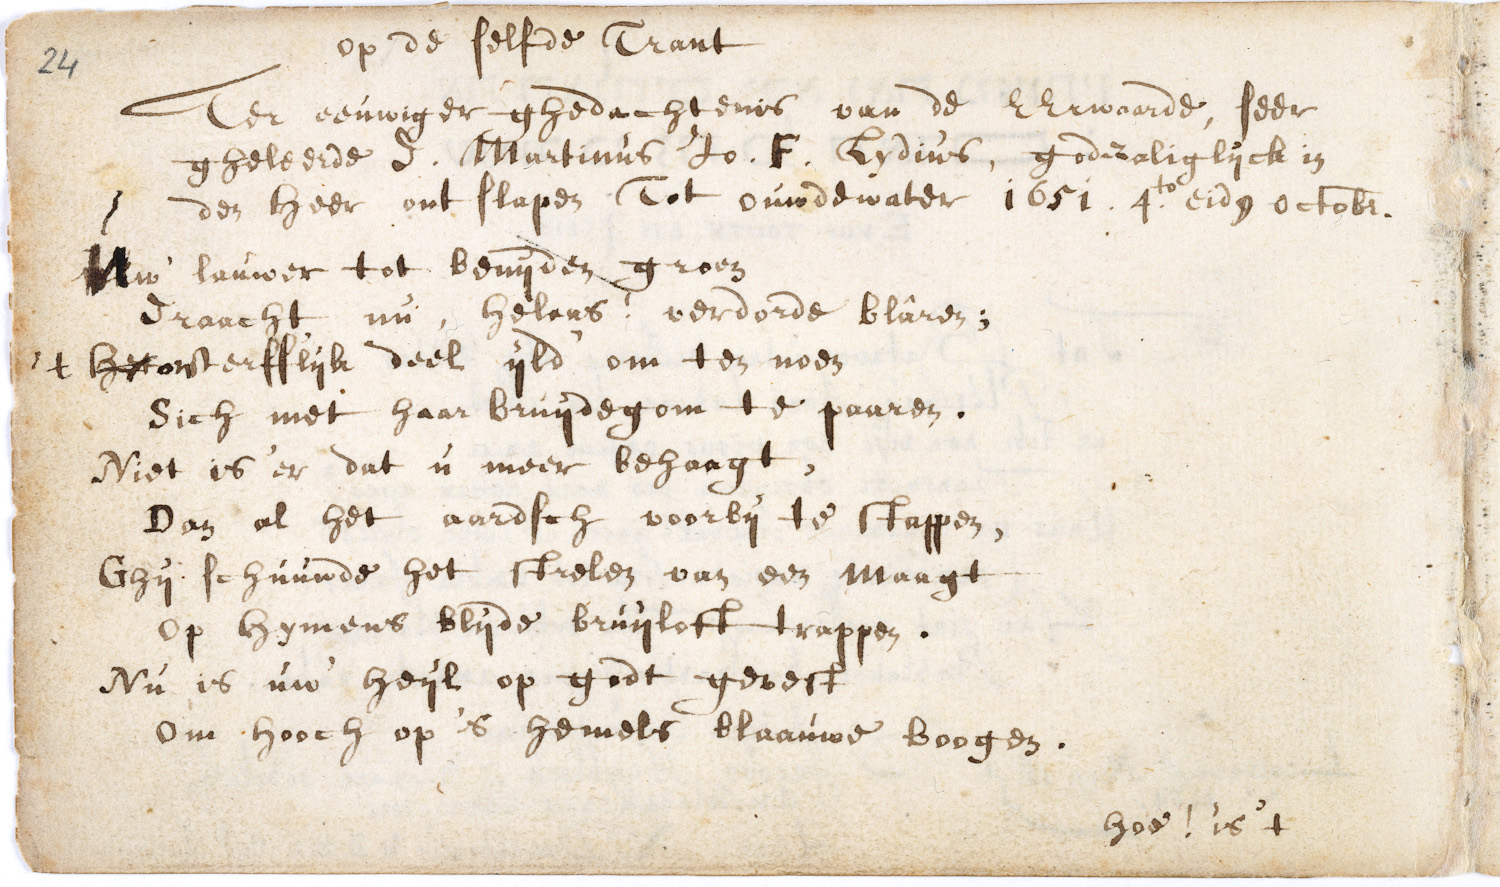 24
op de selfde Trant
Ter eeuwiger ghedachtenis van de EErwaarde, seer
gheleerde D. Martinus Jo. F. Lydius, godzaliglijck in
den Heer ontslapen Tot ouwdewater 1651. 4.to eidy octobr.
Uw lauwer tot benijden groen
Draacht nu, helaas! verdorde blâren;
't onsterfflijk deel ijld' om ten noen
Sich met haar bruijdegom te paaren.
Niet is'er dat u meer behaagt,
Dan al het aardsch voorbij te stappen,
Ghij schuuwde het strelen van een Maagt
Op Hymens blijde bruijloft trappen.
Nu is uw heijl op godt gevest
Om hooch op 's hemels blaauwe boogen.
hoe! is 't